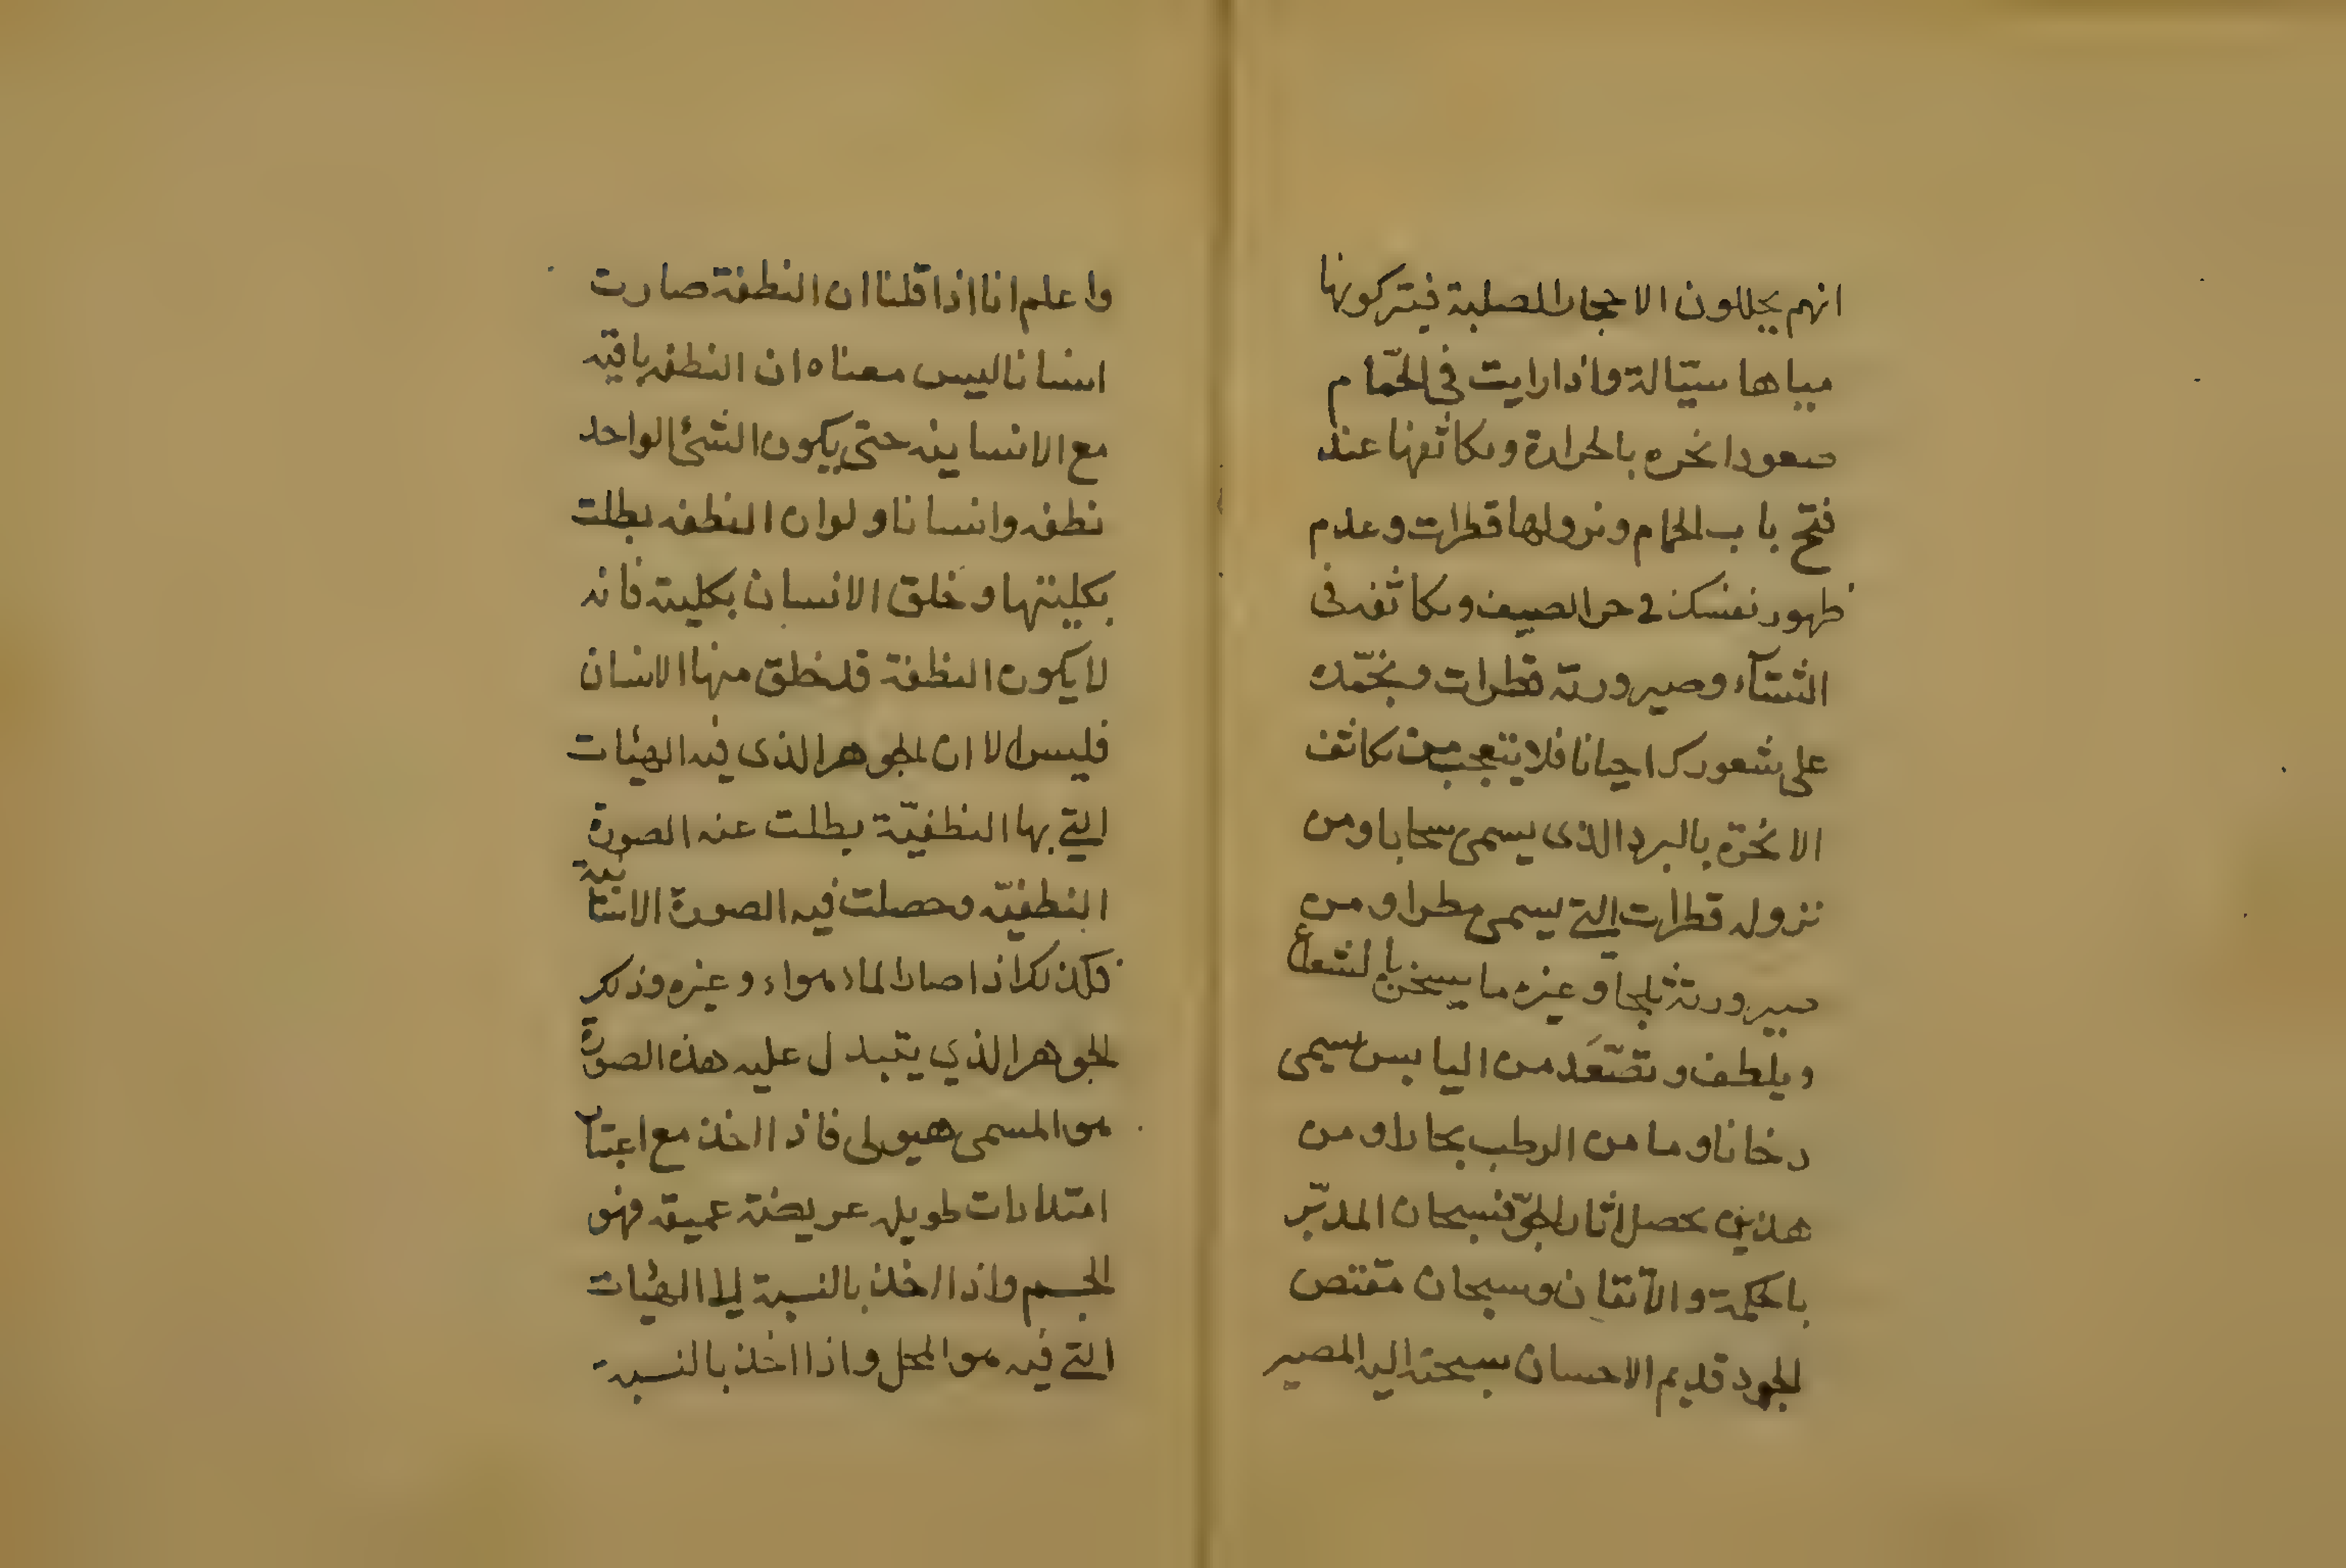 انهم يحللون الاحجار الصلبة فيتركونها
مياها سيّالة واذا رايت فى الحمّام
صعود ابخره بالحرارة وتكاثفها عند
فتح باب الحمام ونزولها قطرات وعدم
ظهور نفسك فى حر الصيف وتكاثفه فى
الشتآء وصيرورته قطرات وتجمّده
على شعورك احيانا فلا يتعجب من تكاثف
الابخرة بالبرد الذى يسمى سحابا ومن
نزوله قطرات التي يسمى مطرا ومن
صيرورته ثلجا وغيره ما يسخن بالشعاع
ويلطف وتصّعَد من اليابس سيمى
دخانا وما من الرطب بخارا ومن
هذين يحصل اثار الجوّ فسبحان المدبّر
بالحكمة والاتقان وسبحان مقتص
الجود قديم الاحسان سبحنه اليه المصير
واعلم انا اذا قلنا ان النطفة صارت
انسانا ليس معناه ان النطفه باقيه
مع الانسانيه حتى يكون الشئ الواحد
نطفه وانسانا ولوان النطفه بطلت
بكليتها وخلق الانسان بكليته فانه
لا يكون النطفة قد خلق منها الانسان
فليس الا ان الجوهر الذى فيه الهيئات
التي بها النطفيّة بطلت عنه الصورة
النطفيّه وحصلت فيه الصورة الانسانية
فكذلك اذا صار الماء هواء وغيره وذلك
الجوهر الذي يتبدل عليه هذه الصورة
هو المسمى هيولى فاذا اخذ مع اعتبار
امتدادات طويله عريضة عميقه فهو
الجسم واذا اخذ بالنسبة الى الهيئات
التي فيه هو المحل واذا اخذ بالنسبة